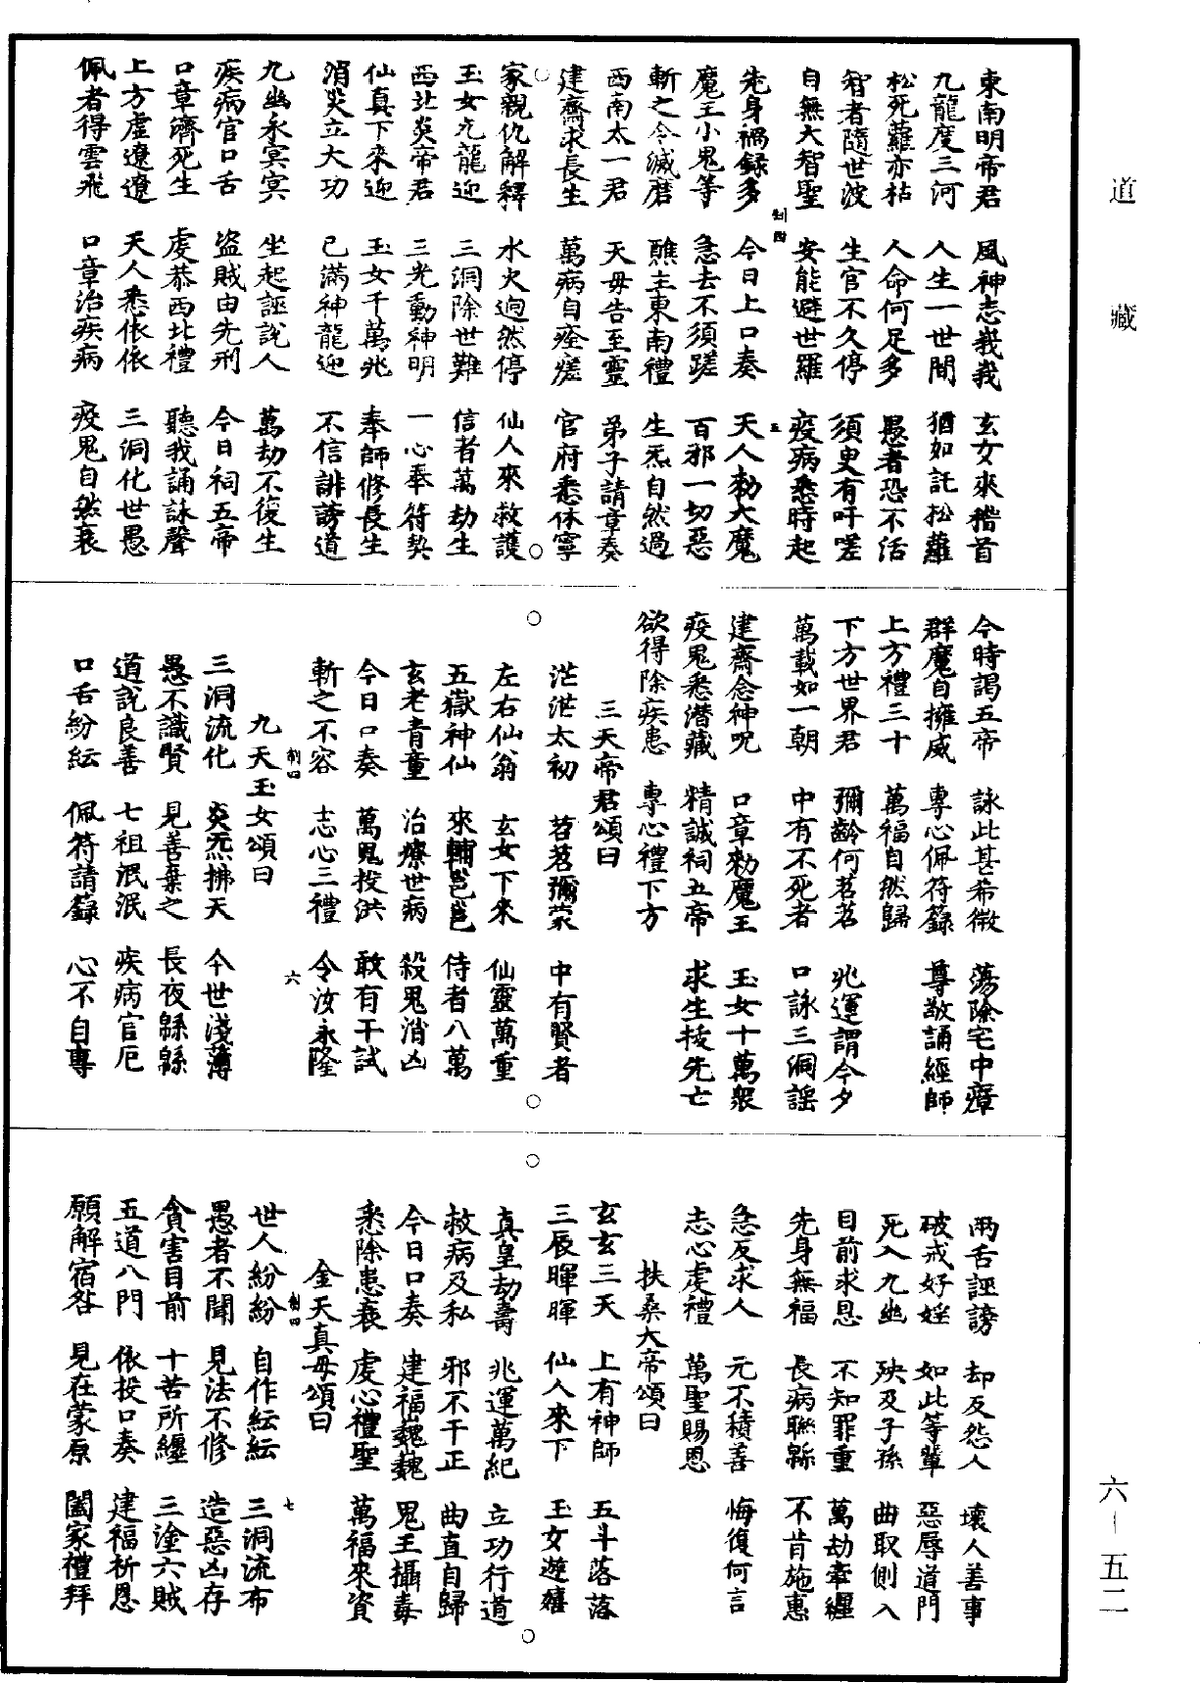 道藏
東南明帝君　風神志峩峩　玄女來稽首
九龍度三河　人生一世間　猶如託松蘿
松死蘿亦枯　人命何足多　愚者恐不活
智者隨世波　生官不久停　須臾有吁嗟
自無大智聖　安能避世羅　疫病悉時起
制四　五
先身禍録多　今日上口奏　天人勑大魔
魔王小鬼等　急去不須蹉　百邪一切惡
斬之令滅磨　醮主東南禮　生炁自然過
西南太一君　天毋告至靈　弟子請章奏
建齋求長生　萬病自痊瘥　官府悉休寧
家親仇解釋　水火逈然停　仙人來救護
玉女九龍迎　三洞除世難　信者萬劫生
西北炎帝君　三光動神明　一心奉符契
仙真下來迎　玉女千萬兆　奉師修長生
消災立大功　已滿神龍迎　不信誹謗道
九幽永冥冥　坐起誣說人　萬劫不復生
疾病官口舌　盜賊由先刑　今日祠五帝
口章濟死生　虔恭西北禮　聽我誦詠聲
上方虛遼遼　天人悉依依　三洞化世愚
佩者得雲飛　口章治疾病　疫鬼自然衰
今時謁五帝　詠此甚希微　蕩除宅中瘴
群魔自擁威　專心佩符籙　尊敬誦經師
上方禮三十　萬福自然歸
下方世界君　彌齡何茗茗　兆運謂今夕
萬載如一朝　中有不死者　口詠三洞謠
建齋念神呪　口章勑魔王　玉女十萬眾
疫鬼悉潛藏　精誠祠五帝　求生拔先亡
欲得除疾患　專心禮下方
三天帝君頌曰
茫茫太初　苕茗彌蒙　中有賢者
左右仙翁　玄女下來　仙靈萬重
五嶽神仙　來輔邕邕　侍者八萬
玄老青童　治療世病　殺鬼消凶
今日口奏　萬鬼投洪　敢有干試
斬之不容　志心三禮　令汝永隆
制四　六
九天玉女頌曰
三洞流化　炎炁拂天　今世淺薄
愚不識賢　見善棄之　長夜緜緜
道說良善　七祖泯泯　疾病官厄
口舌紛紜　佩符請籙　心不自專
兩舌誣謗　却反怨人　壞人善事
破戒好婬　如此等輩　惡辱道門
死入九幽　殃及子孫　曲取側入
目前求恩　不知罪重　萬劫牽纏
先身無福　長病聮緜　不肯施惠
急反求人　元不積善　悔復何言
志心虔禮　萬聖賜恩
扶桑大帝頌曰
玄玄三天　上有神師　五斗落落
三辰暉暉　仙人來下　玉女遊嬉
真皇劫壽　兆運萬紀　立功行道
救病及私　邪不干正　曲直自歸
今日口奏　建福巍巍　鬼王攝毒
悉除患衰　虔心禮聖　萬福來資
金天真母頌曰
制四　七
世人紛紛　自作紜紜　三洞流布
愚者不聞　見法不修　造惡凶存
貪害目前　十苦所纏　三塗六賊
五道八門　依投口奏　建福祈恩
願解宿咎　見在蒙原　闔家禮拜
六－五二